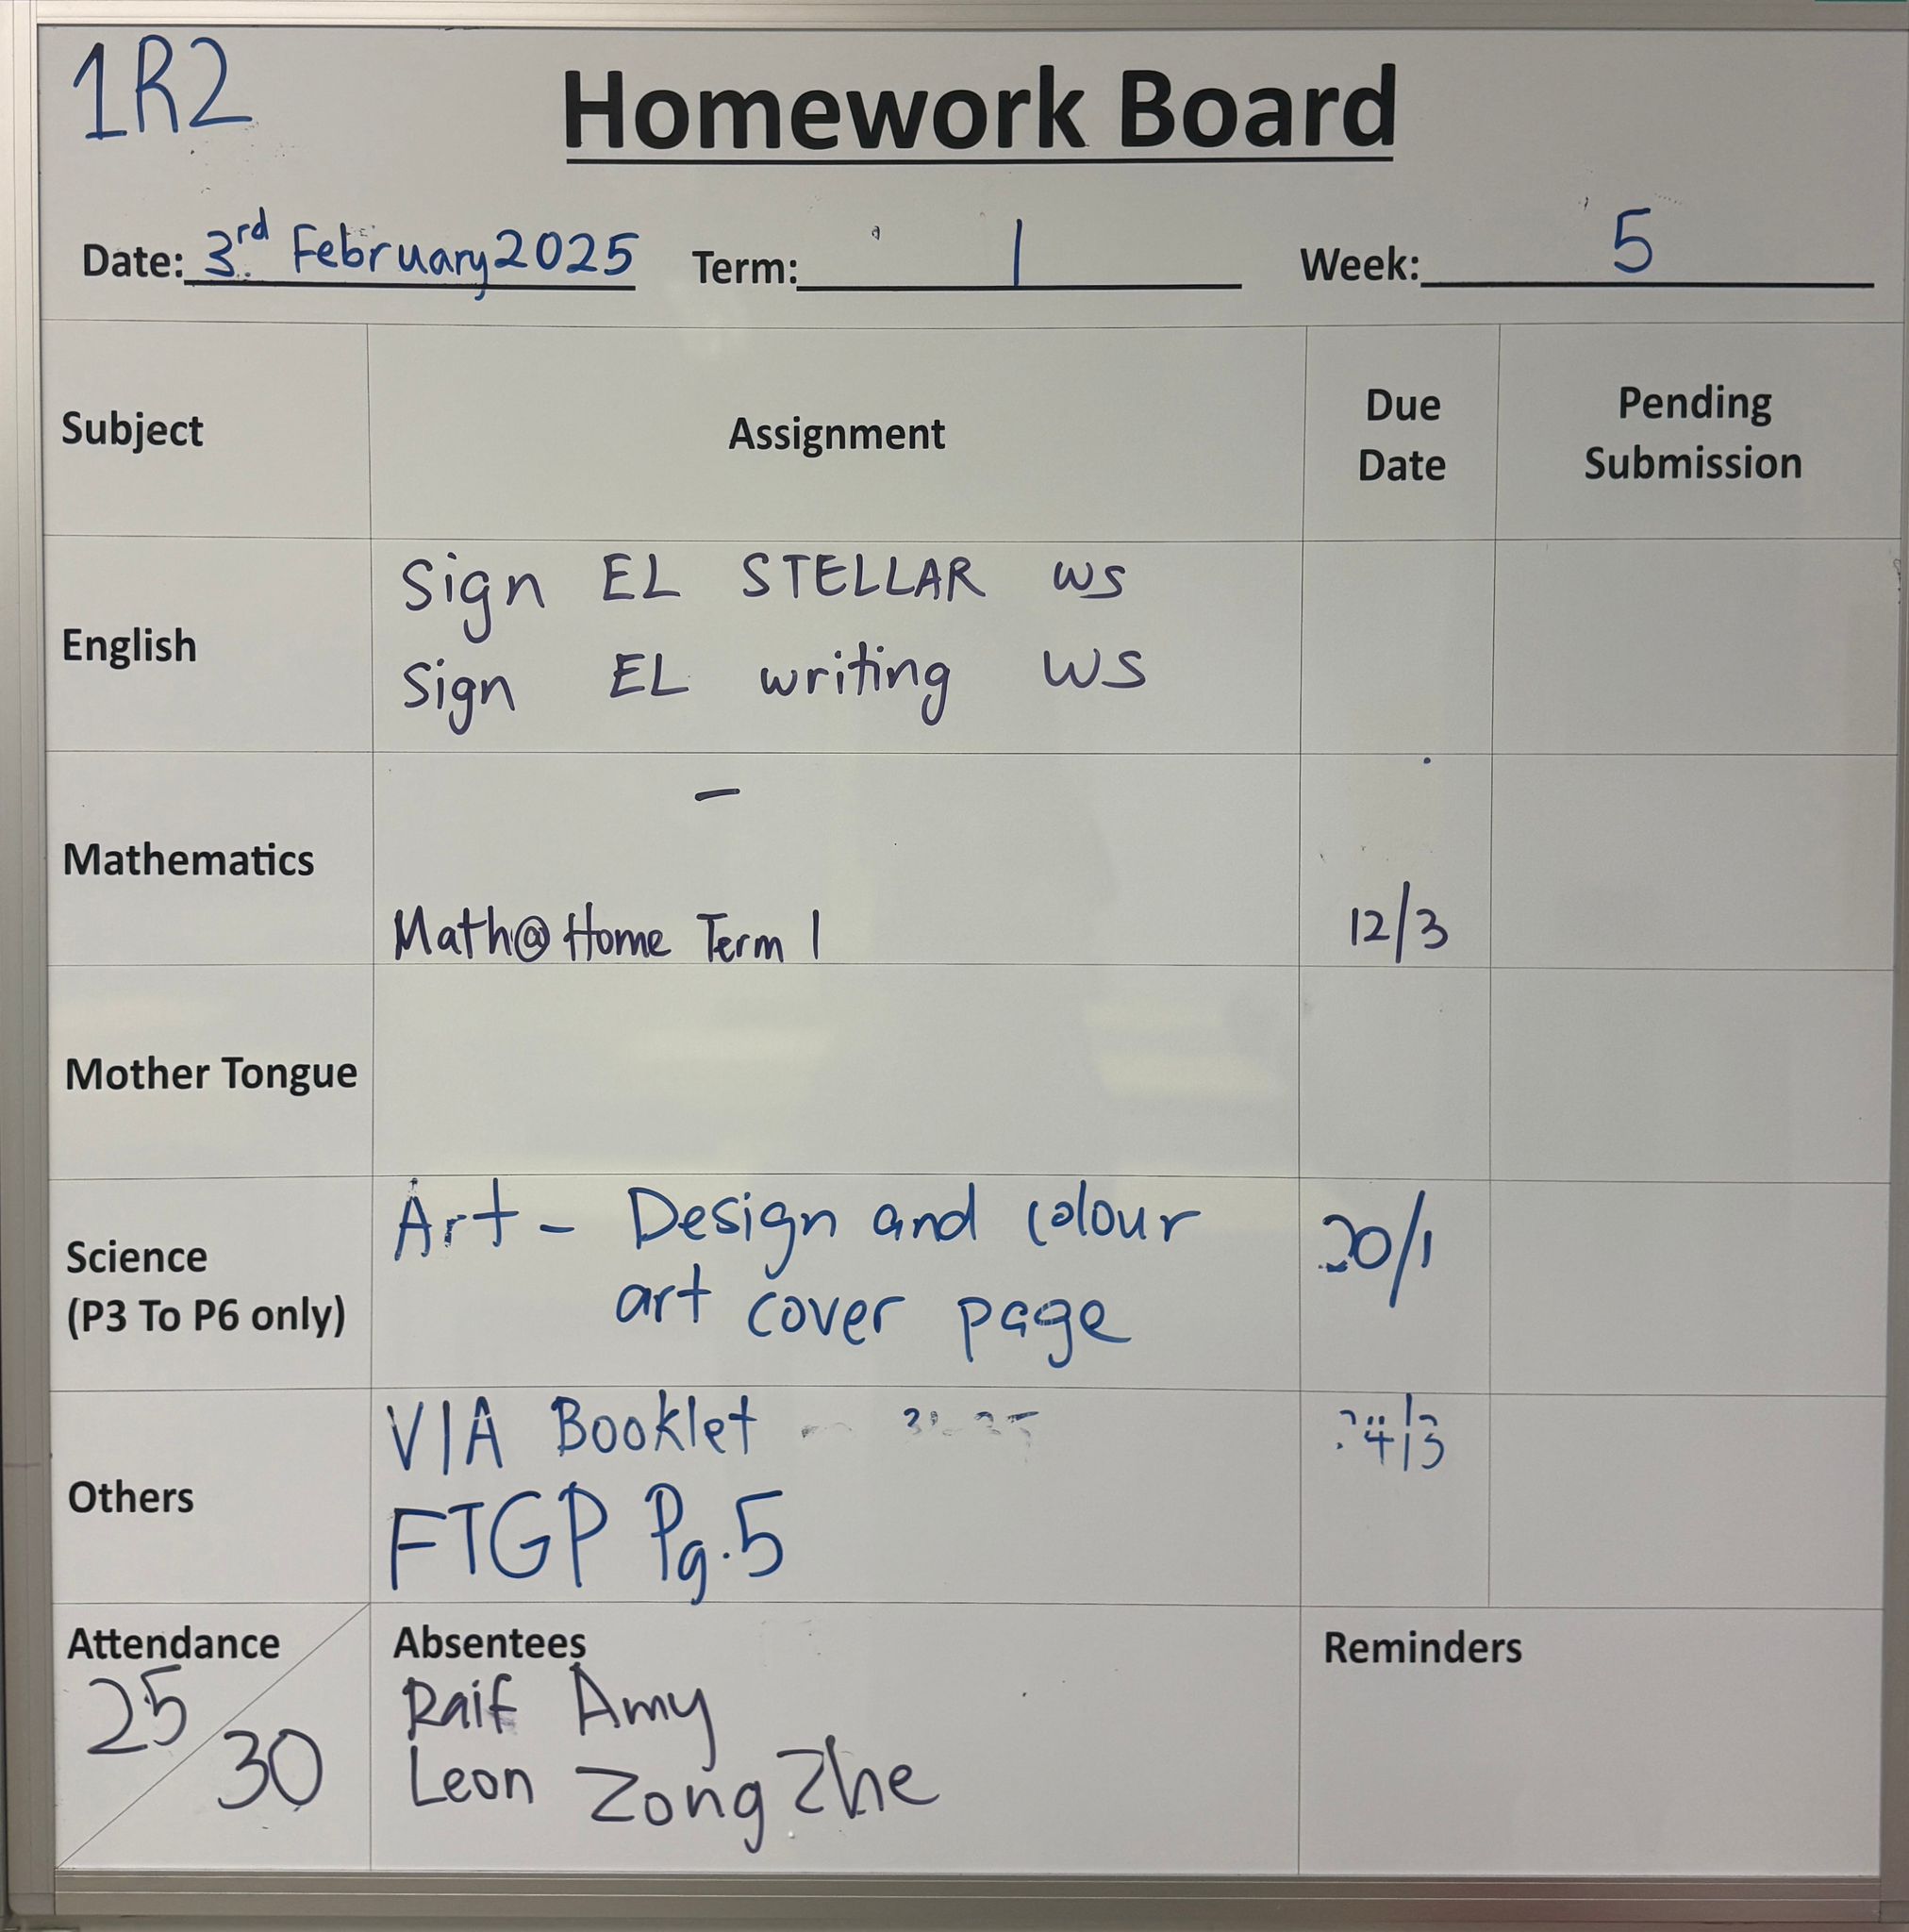 1R2
Homework Board
Date: 3rd February 2025 Term: 1 Week: 5
Subject Assignment Due Date Pending Submission
English
Sign EL STELLAR ws
Sign EL writing WS
Mathematics
-
Math@Home Term 1 12/3
Mother Tongue
Science
(P3 To P6 only)
Art - Design and colour 20/1
art cover page
Others
VIA Booklet
FTGP Pg.5
Attendance
25/30
Absentees
Raif Amy
Leon Zong Zhe
Reminders